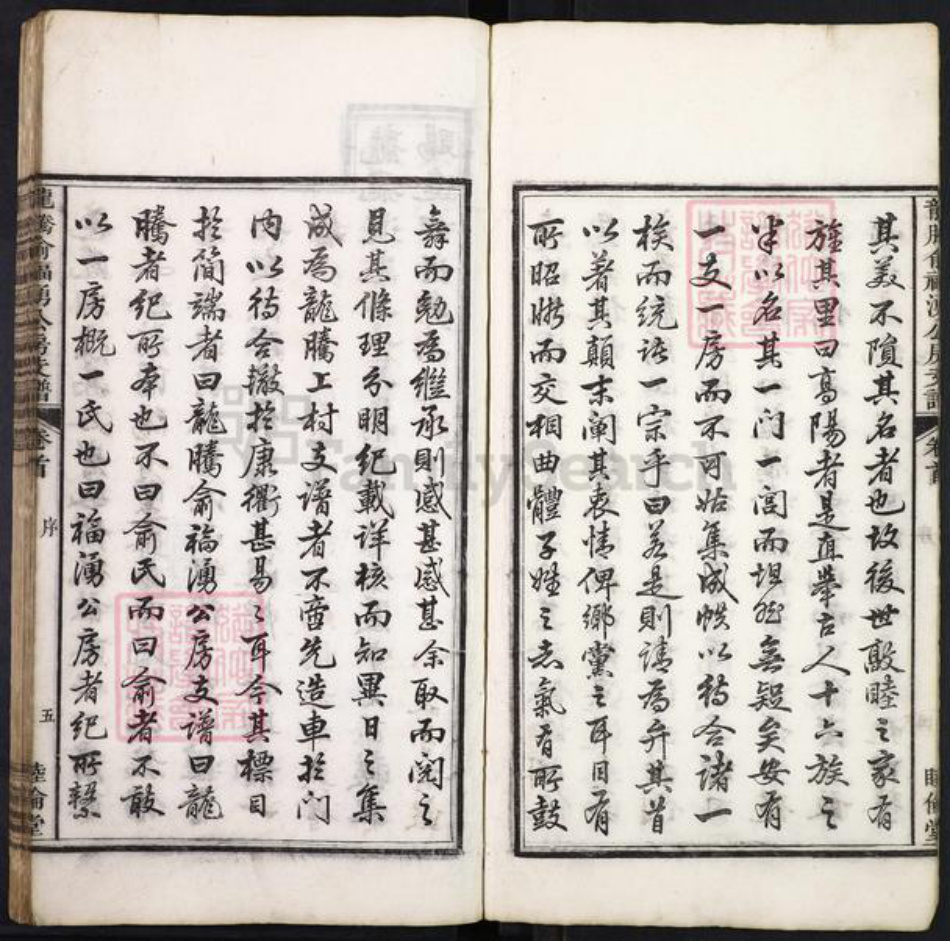 其美不隕其名者也故後世敦睦之家有
旌其里曰高陽者是直舉古人十六族之
半以名其一門一閭而坦然無疑矣安有
一支一房而不可姑集成帙以待合諸一
族而統諸一宗乎曰若是則請為弁其首
以著其顛末闡其衷情俾鄉黨之耳目有
所昭晰而交相曲體子姓之志氣有所鼓
舞而勉為繼承則感甚感甚余取而閱之
見其條理分明紀載詳核而知異日之集
成為龍騰上村支譜者不啻先造車於門
內以待合轍於康衢甚易之耳今其標目
於簡端者曰龍騰俞福湧公房支譜曰龍
騰者紀所本也不曰俞氏而曰俞者不敢
以一房概一氏也曰福湧公房者紀所繫
龍騰俞福湧公房支譜
卷首
序
五
睦倫堂
FamilySearch